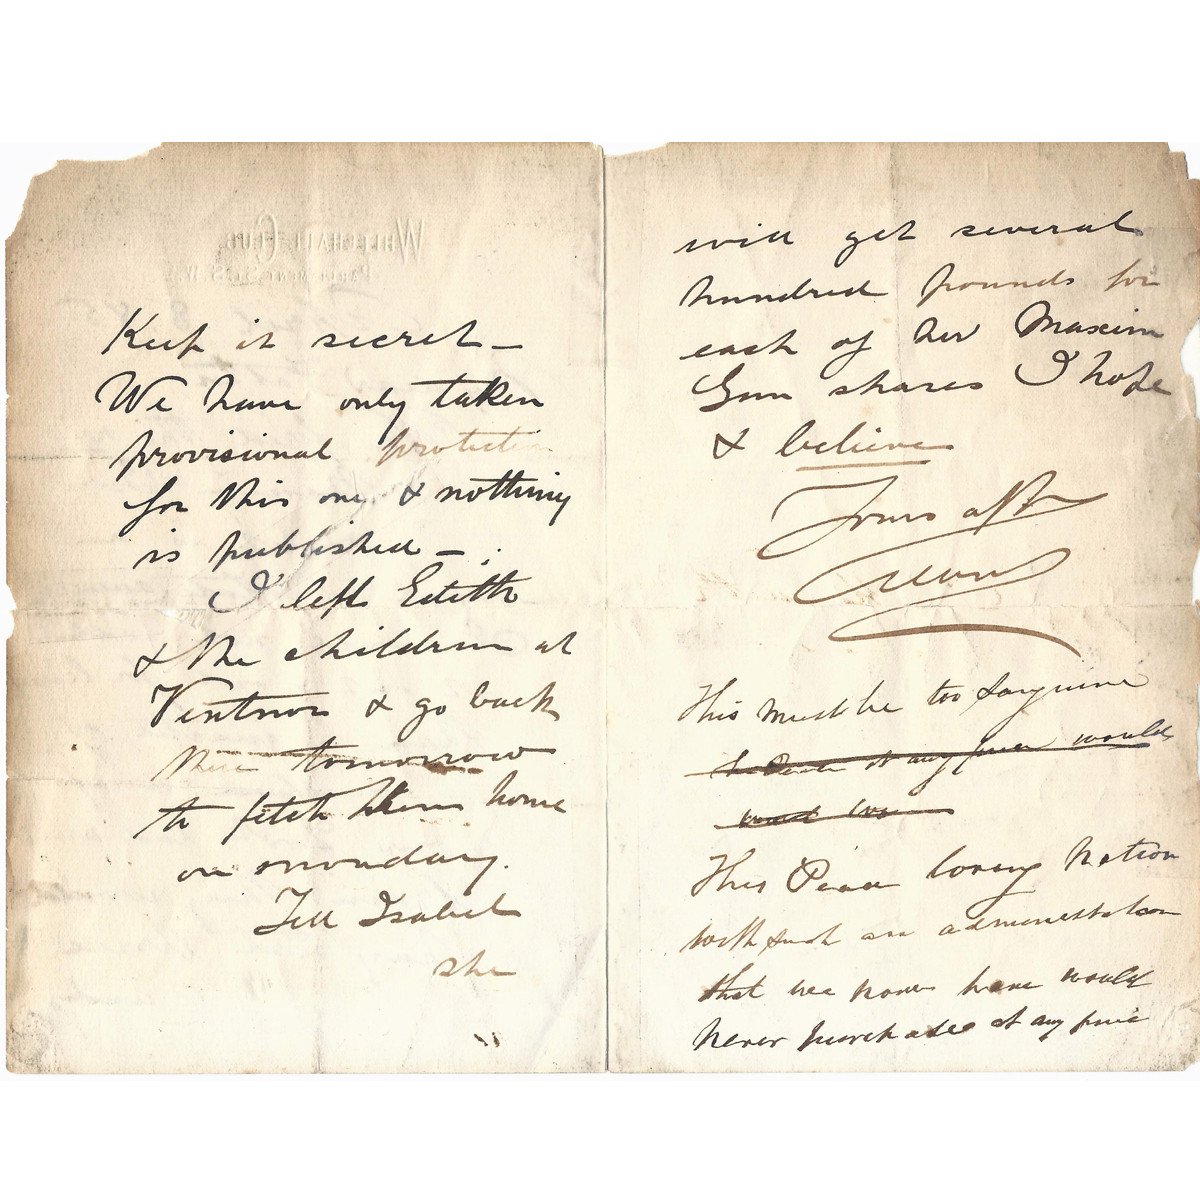 WHITEHALL CLUB
PARLIAMENT ST S.W.
Keep it secret –
We have only taken
provisional protection
for this only & nothing
is published –
I left Edith
& the children at
Ventnor & go back
there tomorrow
to fetch them home
on monday.
Tell Isabel
she
will get several
hundred pounds for
each of her Maxim
Gun shares I hope
& believe
Yours affte
This must be too Sanguine
at any price would
This Peace loving Nation
with such an administration
that we now have would
never purchase at any price